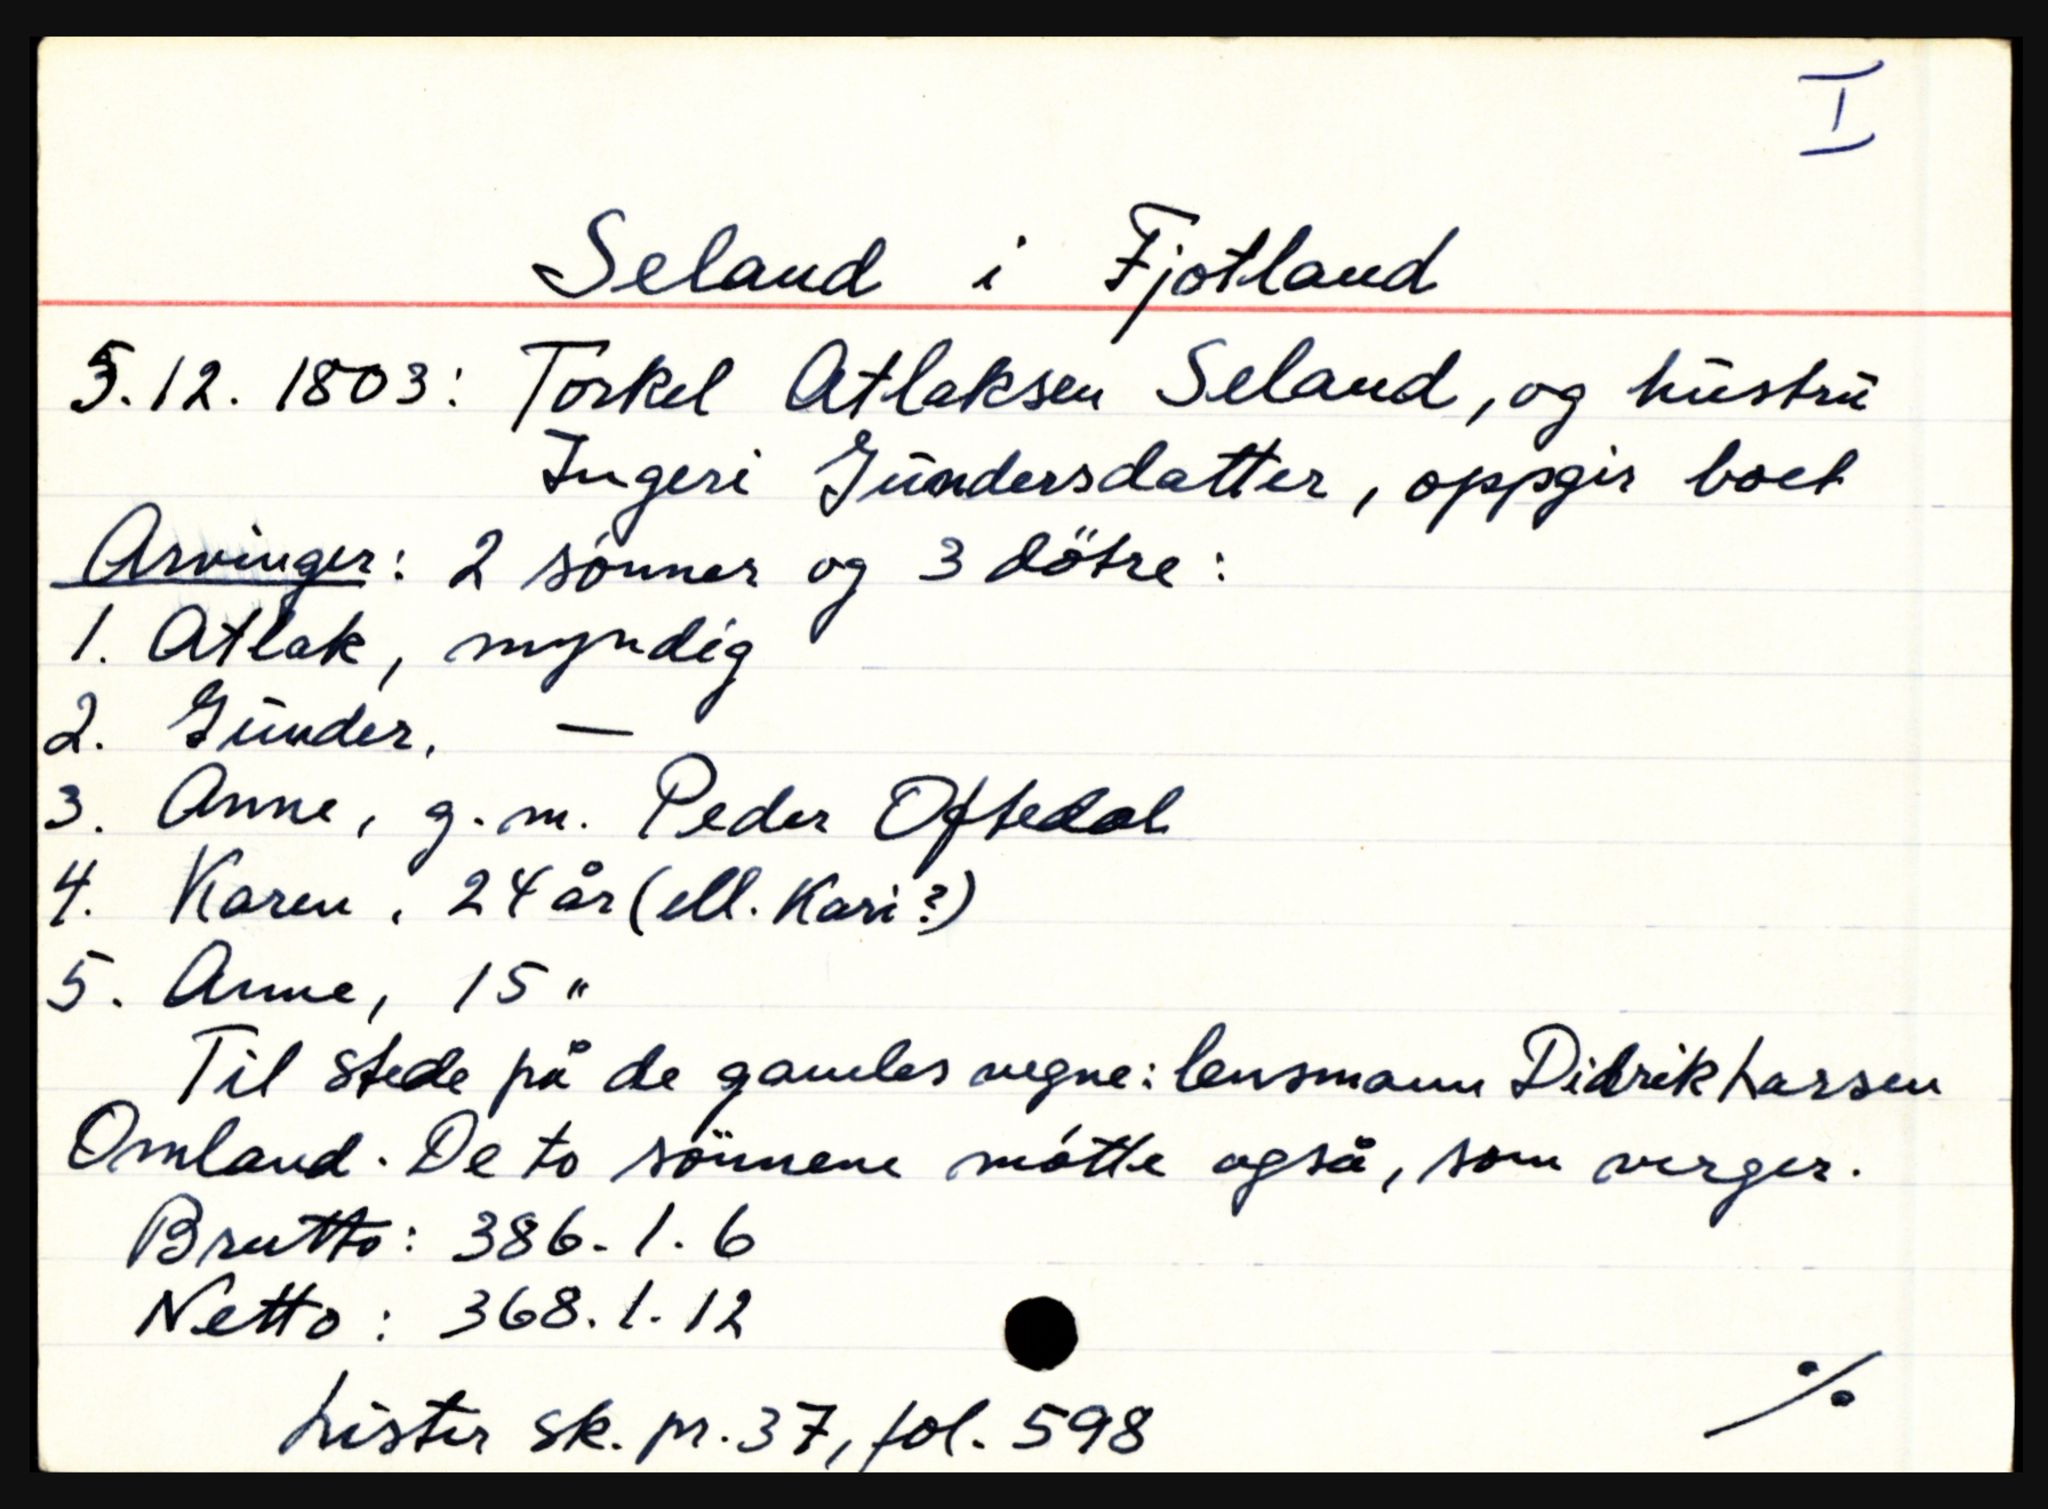 I
Seland i Fjotland
5.12.1803: Torkel Atlaksen Seland, og hustru
Ingeri Gundersdatter, oppgir boet
Arvinger: 2 sönner og 3 dötre:
1. Atlak, myndig
2. Gunder, —
3. Anne, g.m. Peder Oftedal
4. Karen, 24 år (ell. Kari?)
5. Anne, 15 "
Til stede på de gamles vegne: lensmann Didrik Larsen
Omland. De to sönnene mötte også, som verger.
Brutto: 386.1.6
Netto: 368.1.12
Lister sk. pr. 37, fol. 598
./.